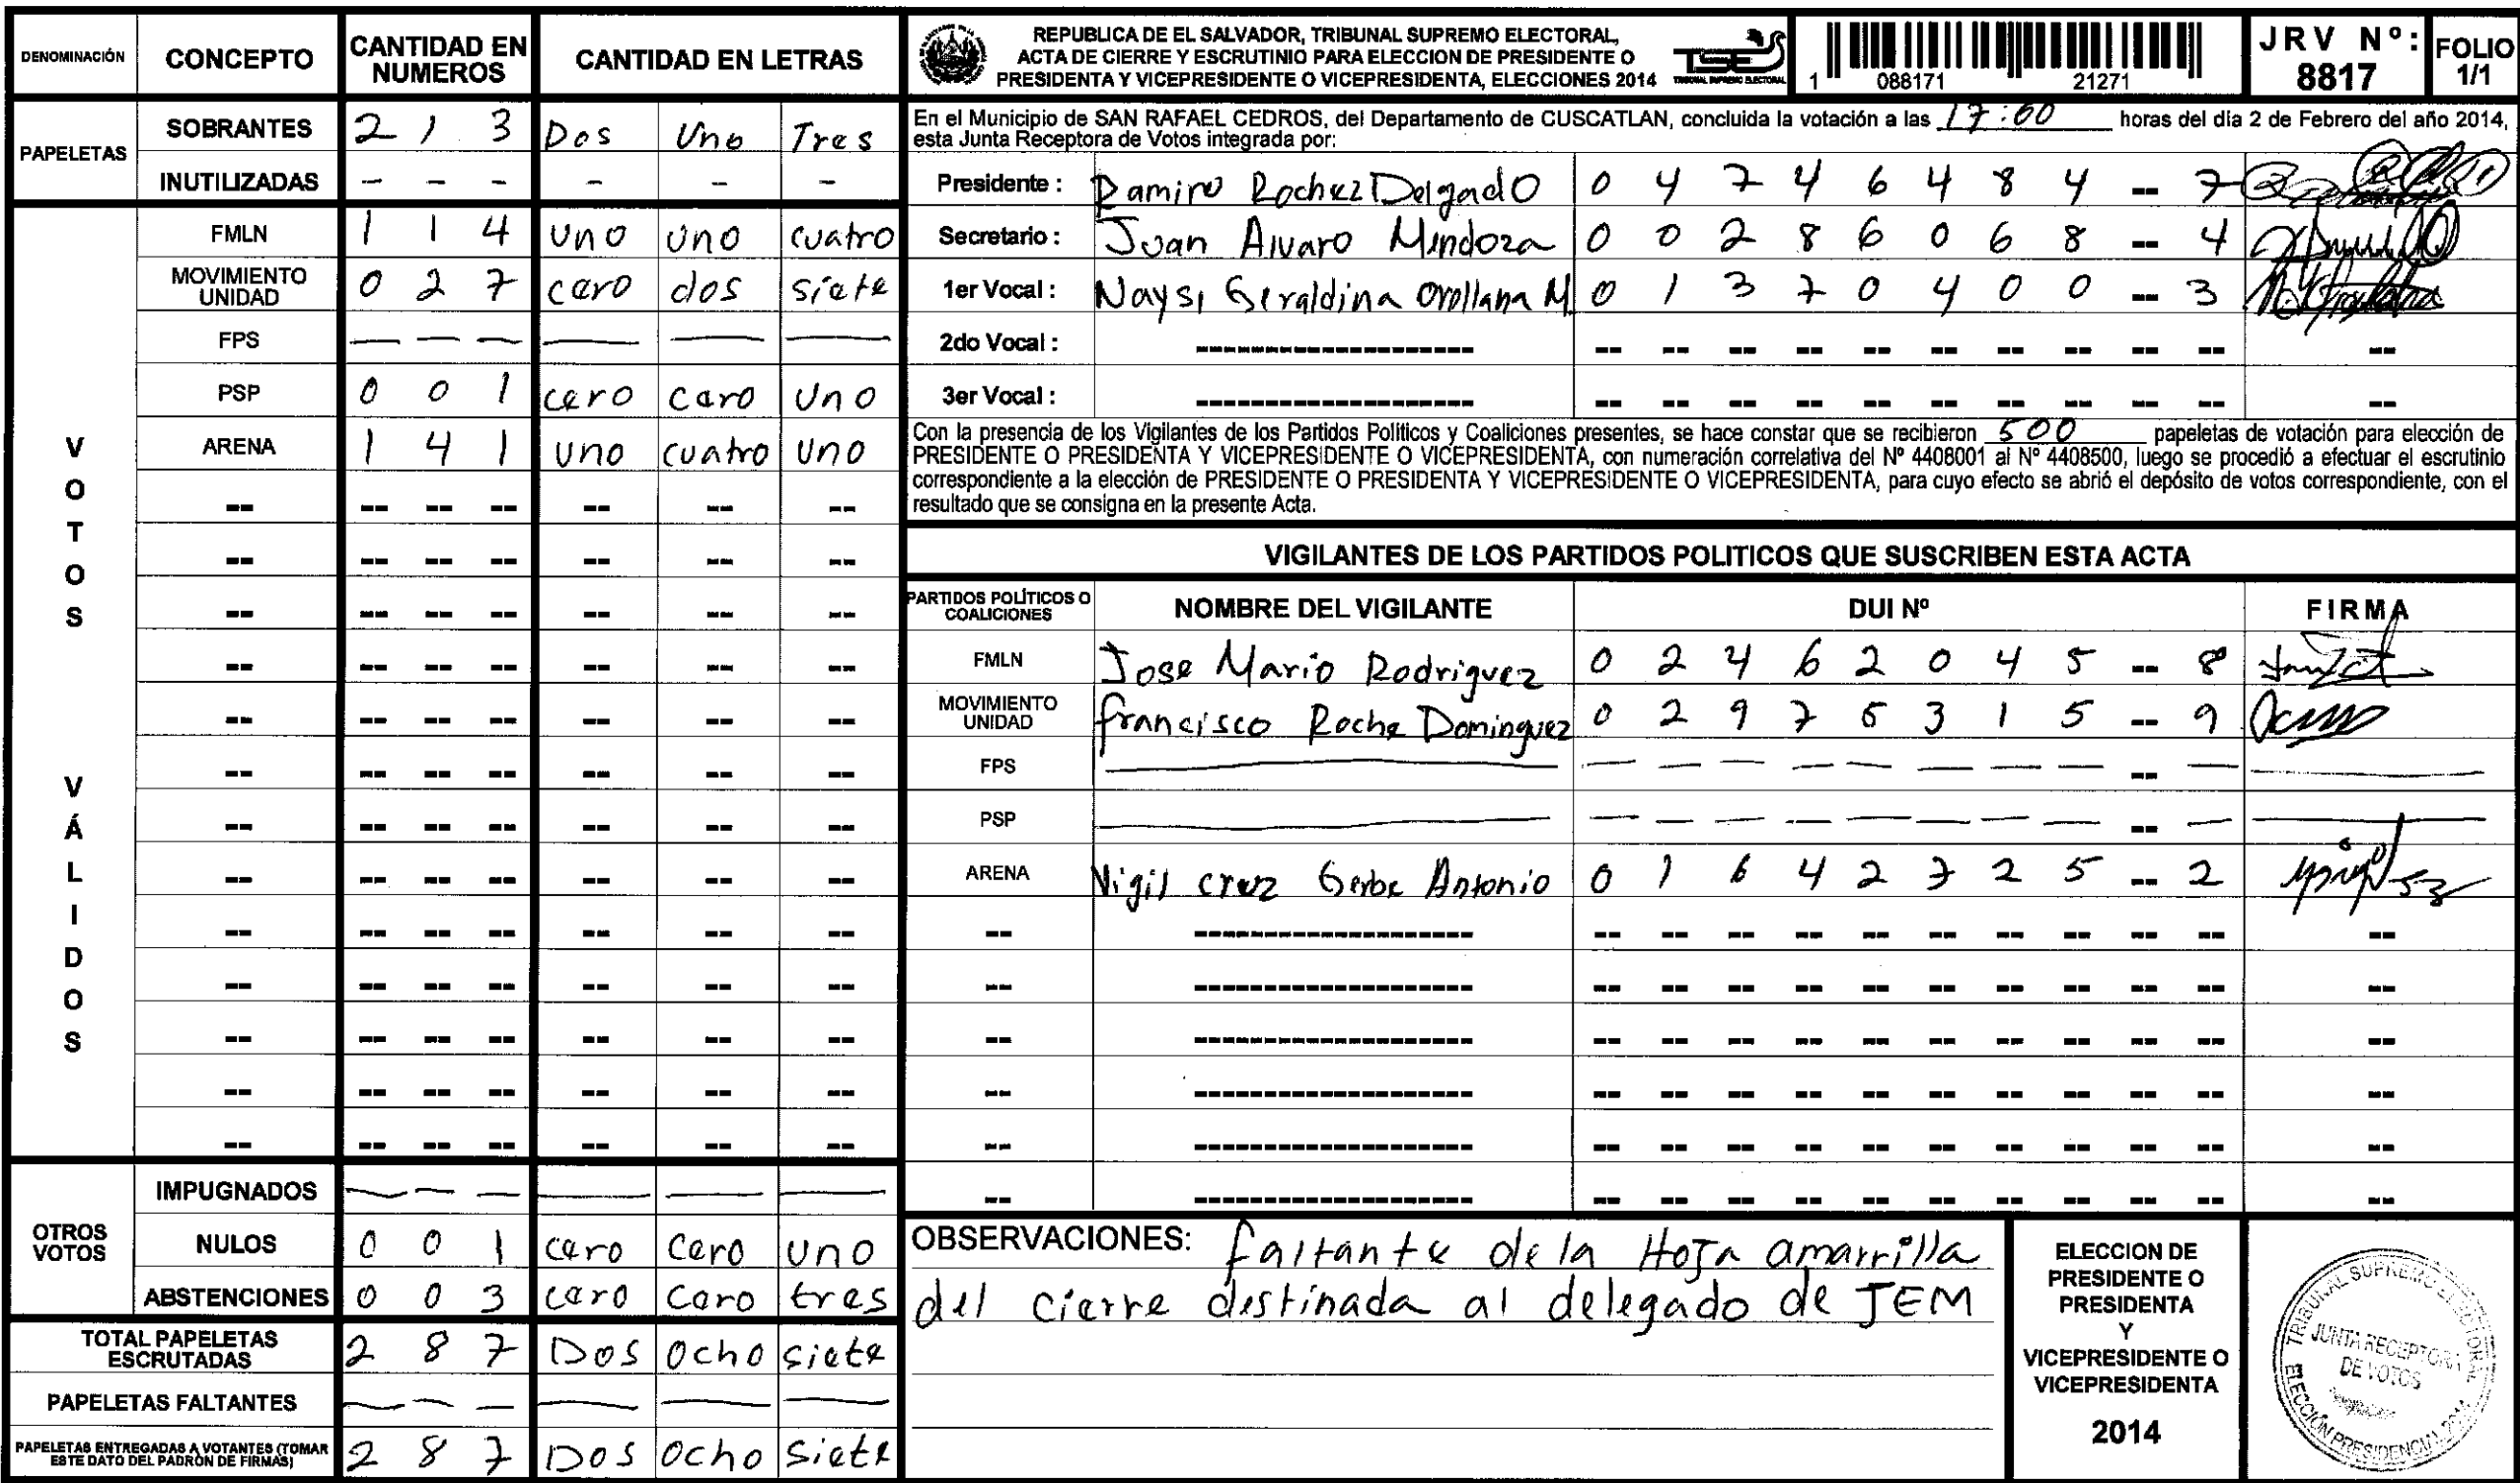 DENOMINACIÓN CONCEPTO CANTIDAD EN NUMEROS CANTIDAD EN LETRAS
PAPELETAS
SOBRANTES 2 1 3 Dos Uno Tres
INUTILIZADAS - - - - - -
VOTOS VÁLIDOS
FMLN 1 1 4 uno uno cuatro
MOVIMIENTO UNIDAD 0 2 7 cero dos siete
FPS — — — — — —
PSP 0 0 1 cero cero uno
ARENA 1 4 1 uno cuatro uno
-- -- -- -- -- -- --
-- -- -- -- -- -- --
-- -- -- -- -- -- --
-- -- -- -- -- -- --
-- -- -- -- -- -- --
-- -- -- -- -- -- --
-- -- -- -- -- -- --
-- -- -- -- -- -- --
-- -- -- -- -- -- --
-- -- -- -- -- -- --
-- -- -- -- -- -- --
-- -- -- -- -- -- --
-- -- -- -- -- -- --
OTROS VOTOS
IMPUGNADOS — — — — — —
NULOS 0 0 1 cero cero uno
ABSTENCIONES 0 0 3 cero cero tres
TOTAL PAPELETAS ESCRUTADAS 2 8 7 Dos ocho siete
PAPELETAS FALTANTES — — — — — —
PAPELETAS ENTREGADAS A VOTANTES (TOMAR ESTE DATO DEL PADRÓN DE FIRMAS) 2 8 7 Dos ocho siete
REPUBLICA DE EL SALVADOR, TRIBUNAL SUPREMO ELECTORAL,
ACTA DE CIERRE Y ESCRUTINIO PARA ELECCION DE PRESIDENTE O
PRESIDENTA Y VICEPRESIDENTE O VICEPRESIDENTA, ELECCIONES 2014
TSE
TRIBUNAL SUPREMO ELECTORAL
1 088171 21271
JRV Nº: 8817
FOLIO 1/1
En el Municipio de SAN RAFAEL CEDROS, del Departamento de CUSCATLAN, concluida la votación a las 17:00 horas del día 2 de Febrero del año 2014,
esta Junta Receptora de Votos integrada por:
Presidente : Ramiro Rochez Delgado 0 4 7 4 6 4 8 4 -- 7
Secretario : Juan Alvaro Mendoza 0 0 2 8 6 0 6 8 -- 4
1er Vocal : Naysi Geraldina Orollana M. 0 1 3 7 0 4 0 0 -- 3
2do Vocal : -------------------- -- -- -- -- -- -- -- -- -- -- --
3er Vocal : -------------------- -- -- -- -- -- -- -- -- -- -- --
Con la presencia de los Vigilantes de los Partidos Políticos y Coaliciones presentes, se hace constar que se recibieron 500 papeletas de votación para elección de
PRESIDENTE O PRESIDENTA Y VICEPRESIDENTE O VICEPRESIDENTA, con numeración correlativa del Nº 4408001 al Nº 4408500, luego se procedió a efectuar el escrutinio
correspondiente a la elección de PRESIDENTE O PRESIDENTA Y VICEPRESIDENTE O VICEPRESIDENTA, para cuyo efecto se abrió el depósito de votos correspondiente, con el
resultado que se consigna en la presente Acta.
VIGILANTES DE LOS PARTIDOS POLITICOS QUE SUSCRIBEN ESTA ACTA
PARTIDOS POLÍTICOS O COALICIONES NOMBRE DEL VIGILANTE DUI Nº FIRMA
FMLN Jose Mario Rodriguez 0 2 4 6 2 0 4 5 -- 8
MOVIMIENTO UNIDAD francisco Roche Dominguez 0 2 9 7 5 3 1 5 -- 9
FPS — — — — — — — — — -- — —
PSP — — — — — — — — — -- — —
ARENA Vigil cruz Antonio 0 1 6 4 2 7 2 5 -- 2
-- -------------------- -- -- -- -- -- -- -- -- -- -- --
-- -------------------- -- -- -- -- -- -- -- -- -- -- --
-- -------------------- -- -- -- -- -- -- -- -- -- -- --
-- -------------------- -- -- -- -- -- -- -- -- -- -- --
-- -------------------- -- -- -- -- -- -- -- -- -- -- --
-- -------------------- -- -- -- -- -- -- -- -- -- -- --
OBSERVACIONES: faltante de la Hoja amarrilla
del cierre destinada al delegado de JEM
ELECCION DE
PRESIDENTE O
PRESIDENTA
Y
VICEPRESIDENTE O
VICEPRESIDENTA
2014
TRIBUNAL SUPREMO ELECTORAL
JUNTA RECEPTORA
DE VOTOS
ELECCIÓN PRESIDENCIAL 2014